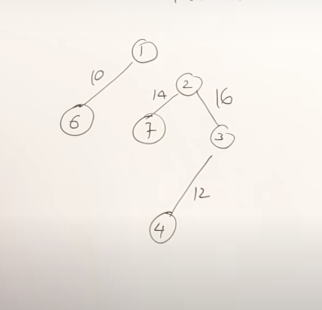 1
10
2
14
16
6
7
3
12
4